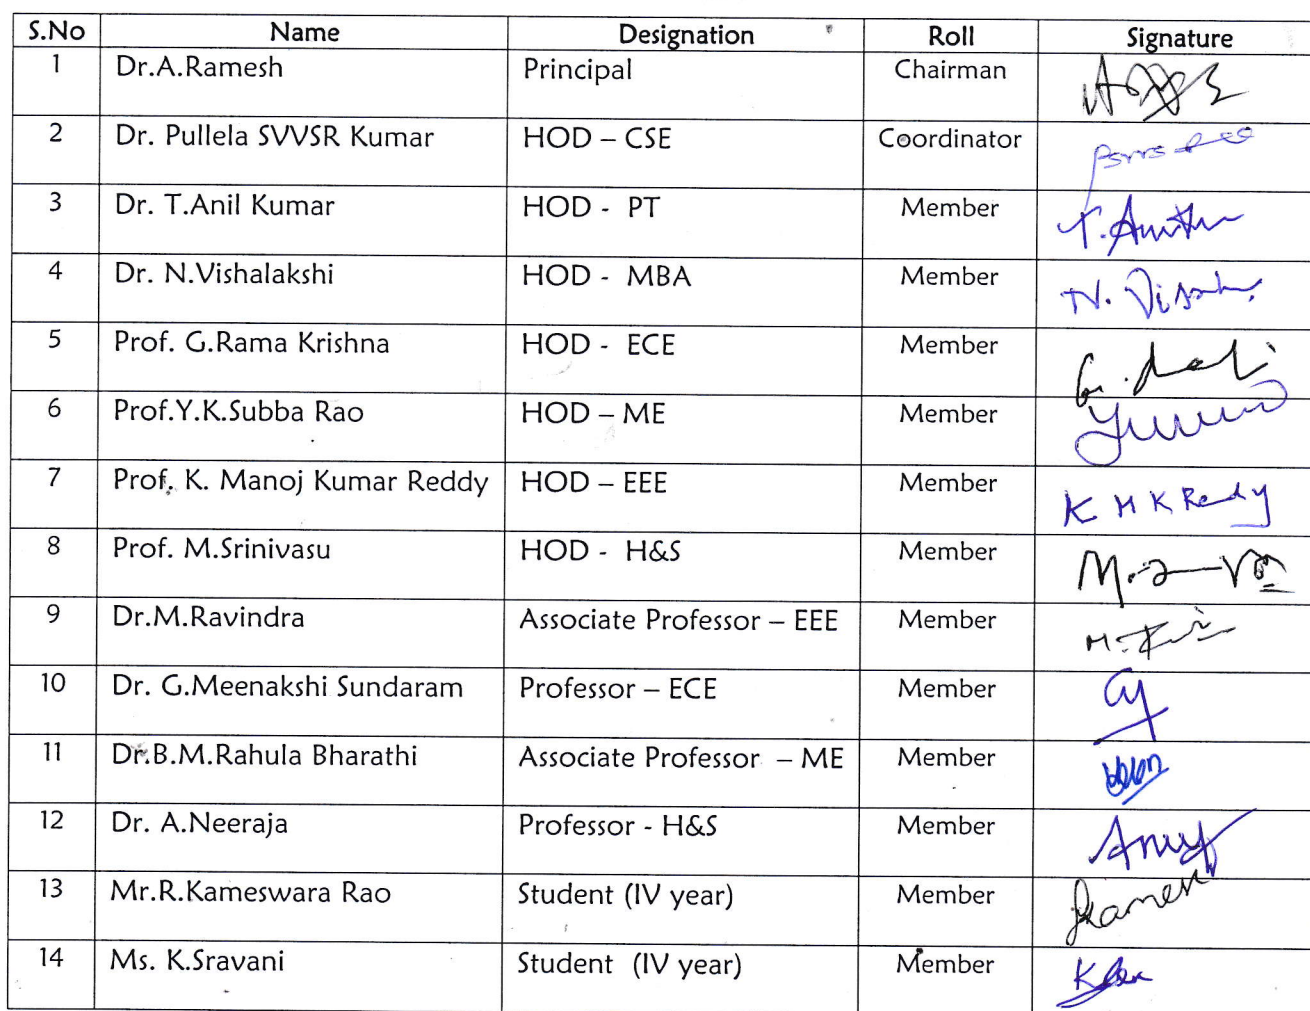 S.No Name Designation Roll Signature
1 Dr.A.Ramesh Principal Chairman
2 Dr. Pullela SVVSR Kumar HOD – CSE Coordinator
3 Dr. T.Anil Kumar HOD - PT Member
4 Dr. N.Vishalakshi HOD - MBA Member
5 Prof. G.Rama Krishna HOD - ECE Member
6 Prof.Y.K.Subba Rao HOD – ME Member
7 Prof. K. Manoj Kumar Reddy HOD – EEE Member K M K Reddy
8 Prof. M.Srinivasu HOD - H&S Member
9 Dr.M.Ravindra Associate Professor – EEE Member
10 Dr. G.Meenakshi Sundaram Professor – ECE Member
11 Dr.B.M.Rahula Bharathi Associate Professor – ME Member
12 Dr. A.Neeraja Professor - H&S Member
13 Mr.R.Kameswara Rao Student (IV year) Member
14 Ms. K.Sravani Student (IV year) Member